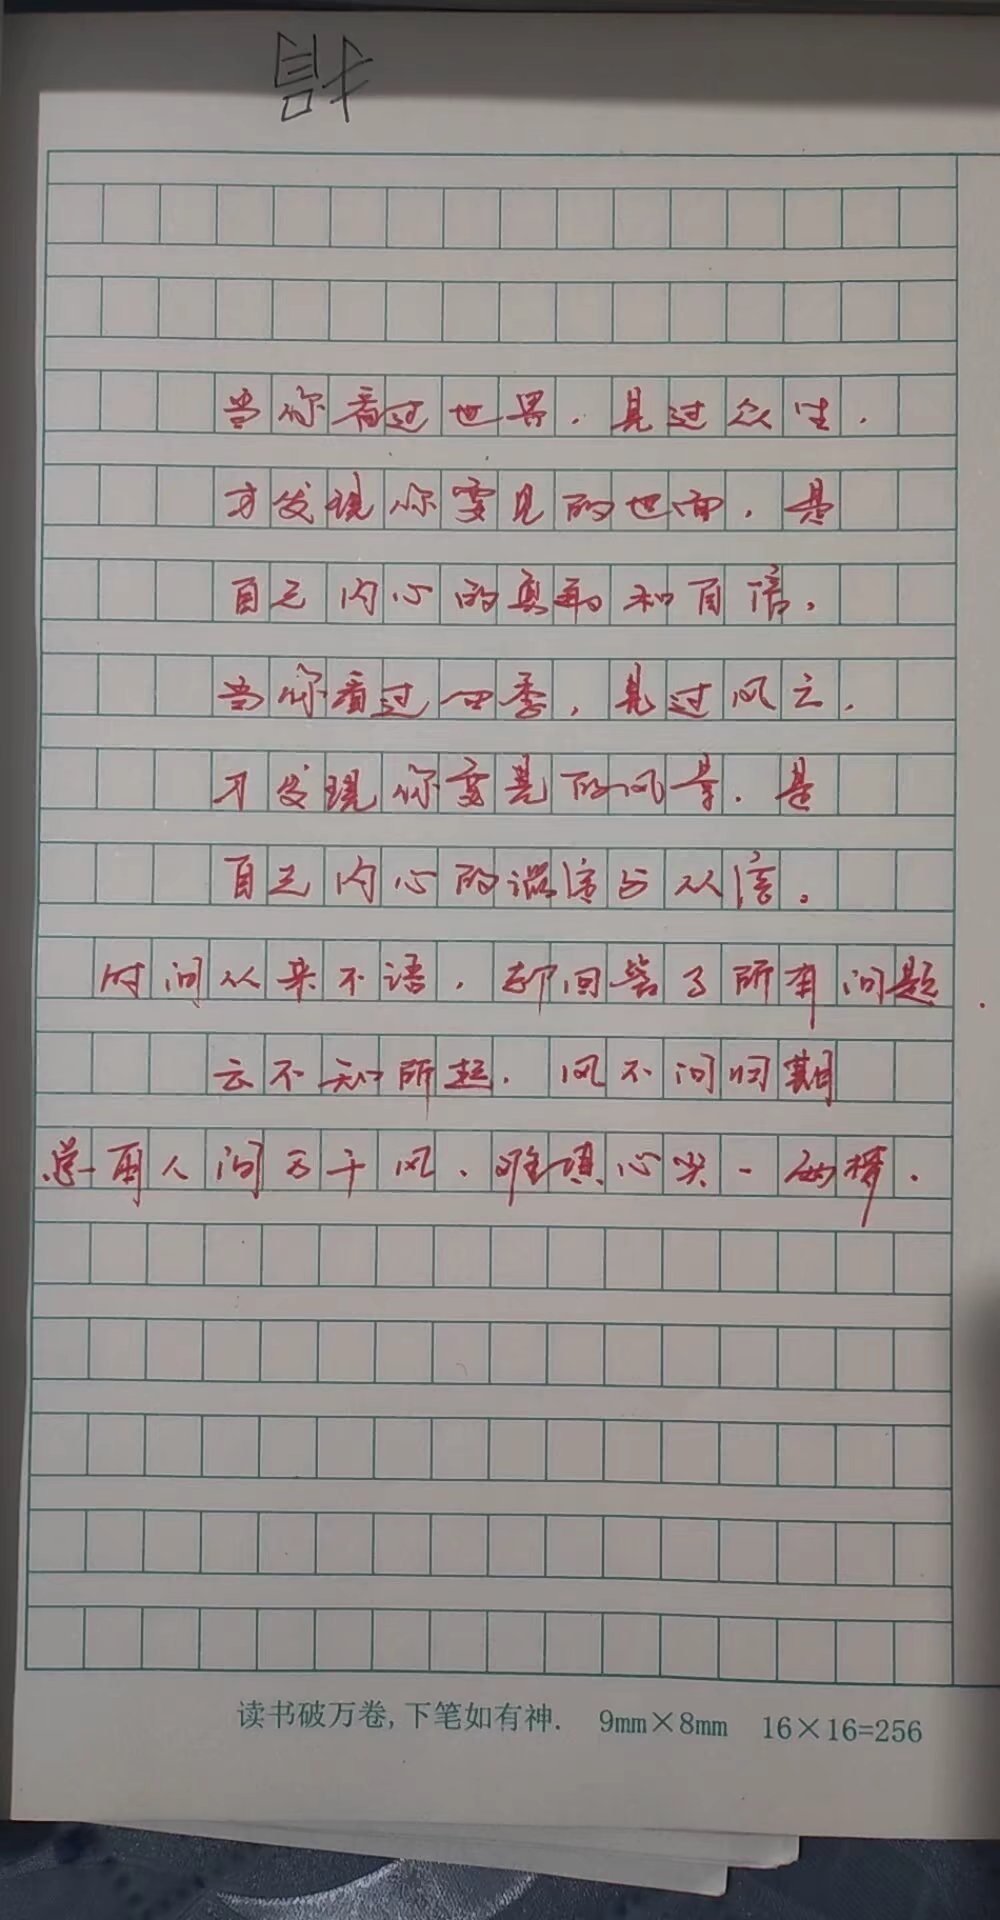 当你看过世界，见过众生，
才发现你要见的世面，是
自己内心的勇敢和自信，
当你看过四季，见过风云，
才发现你要见的风景，是
自己内心的谦逊与从容。
时间从来不语，却回答了所有问题。
云不知所起，风不问归期
总用人间万千风，难填心尖一
读书破万卷,下笔如有神. 9mm×8mm 16×16=256